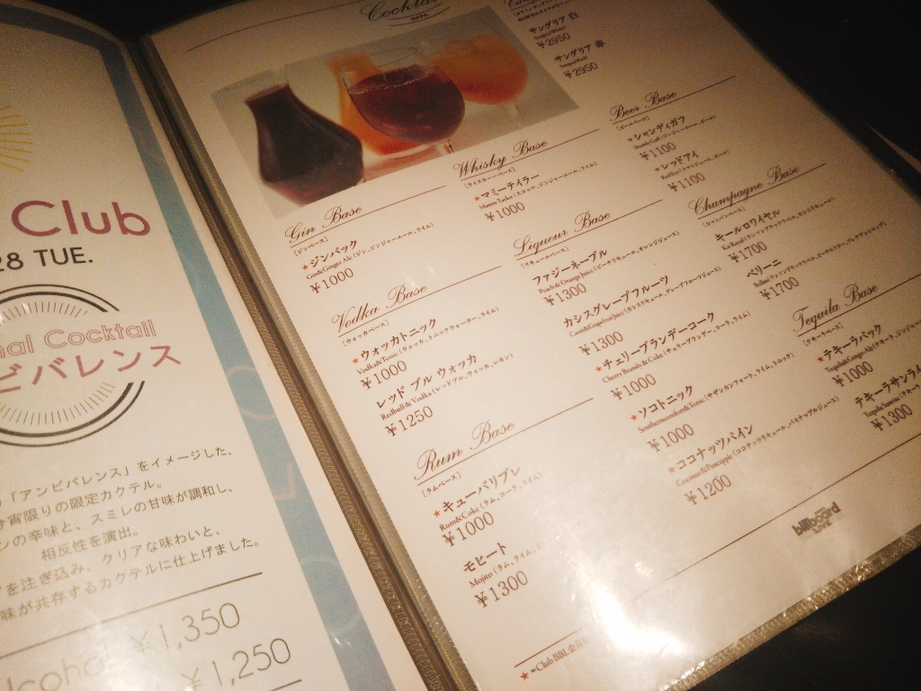 Club
28 TUE.
nal Cocktail
ビバレンス
「アンビバレンス」をイメージした、
宵限りの限定カクテル。
ンの辛味と、スミレの甘味が調和し、
相反性を演出。
を注ぎ込み、クリアな味わいと、
味が共存するカクテルに仕上げました。
¥1,350
¥1,250
Cocktail
サングリア 白
¥2950
サングリア 赤
¥2950
Gin Base
[ジンベース]
★ジンバック
Gin&Ginger Ale (ジン、ジンジャーエール、ライム)
¥1000
Vodka Base
[ウォッカベース]
★ウォッカトニック
Vodka&Tonic (ウォッカ、トニックウォーター、ライム)
¥1000
レッド ブル ウォッカ
RedBull & Vodka (レッドブル、ウォッカ、レモン)
¥1250
Rum Base
[ラムベース]
★キューバリブレ
Rum&Coke (ラム、コーラ、ライム)
¥1000
モヒート
Mojito (ラム、ライム、
¥1300
Whisky Base
[ウイスキーベース]
★マミーテイラー
Mamie Taylor (スコッチ、ジンジャーエール、ライム)
¥1000
Liqueur Base
[リキュールベース]
ファジーネーブル
Peach & Orange Juice (ピーチリキュール、オレンジジュース)
¥1300
カシスグレープフルーツ
Cassis&Grapefruit Juice (カシスリキュール、グレープフルーツジュース)
¥1300
★チェリーブランデーコーク
Cherry Brandy & Coke (チェリーブランデー、コーラ、ライム)
¥1000
★ソコトニック
Southerncomfort&Tonic (サザンカンフォート、ライム、トニック)
¥1000
★ココナッツパイン
Coconut&Pineapple (ココナッツリキュール、パイナップルジュース)
¥1200
Beer Base
[ビールベース]
★シャンディガフ
Shandy Gaff (ジンジャーエール、ビール)
¥1100
★レッドアイ
Red Eye (トマトジュース、ビール)
¥1100
Champagne Base
[シャンパンベース]
キールロワイヤル
¥1700
ベリーニ
¥1700
Tequila Base
[テキーラベース]
★テキーラバック
Tequila&Ginger Ale (テキーラ、ジンジ
¥1000
テキーラサンライ
Tequila Sunrise (テキーラ
¥1300
billboard
★=Club BBL会員